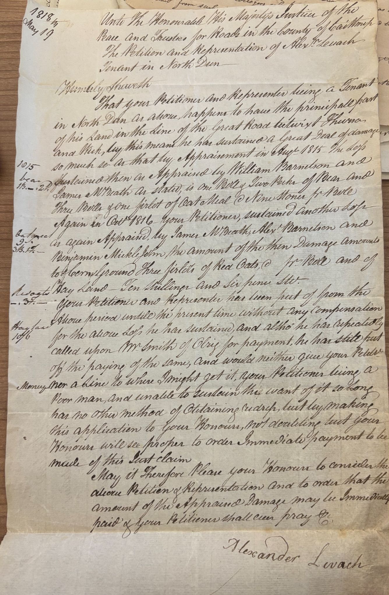 1818
May 19
Unto The Honourable His Majestys Justice of the
Peace and Trustees for Roads in the County of Caithness
The Petition and Representation of Alexr Levach
Tenant in North Dun
Humbly Sheweth
That your Petitioner and Representer being a Tenant
in North Dun as above happens to have the principale part
of his Land in the line of the Great Road betwixt Thurso
and Wick, by this means he has sustained a Great Deal of damage
so much so as that by Appraisment in Augt 1815 The Loss
sustained then as Appraised by William Barnetson and
James McBeath as stated is one Boll & Two Pecks of Bear and
Three Bolls & one firlot of Oat Meal @ Nine Stones pr Boll
Again in Octr 1816 Your Petitioner, sustained Another Loss
as again Appraised, by James McBeath, Alex Barnetson and
Benjamin Micklejohn, the amount of the then Damage amounts
to Three firlots of Red Oats @ pr Boll and of
Hay Land Ten Shillings and Six pence Str
Your Petitioner and Representer has been put of from the
above period untill the present time without any Compensation
for the above Loss he has sustained, and altho he has repeatedly
called upon Mr Smith of Olrig for payment, he has still put
off the paying of the same, and would neither give your Petitioner
Money nor a Line to where I might get it, & your Petitioner being a
Poor man, and unable to sustain the want of it so long
has no other method of Obtaining redress, but by making
this application to Your Honours, not doubting but Your
Honours will see proper to order Immediate payment to be
made of this Just claim
May it Therefore Please your Honours to consider the
above Petition & Representation and to order that the
amount of the Appraised Damage may be Immediately
paid & Your Petitioner shall ever pray &c
Alexander Levach
1815
Hay Land
10/6